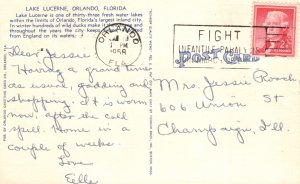 LAKE LUCERNE, ORLANDO, FLORIDA
Lake Lucerne is one of thirty-three fresh water lakes
within the limits of Orlando, Florida's largest inland city.
In winter hundreds of wild ducks make
throughout the years the city keeps
from Europe on its waters.
ORLANDO
PM
1958
FLA
FIGHT
INFANTILE PARALYSIS
2¢
POST CARD
Dear Jessie
Having a grand time
as usual, gadding and
shopping. It is warm
now, after the cold
spell. Home in a
couple of weeks.
Love
Ella
Mrs. Jessie Roach
606 Union St
Champaign, Ill.